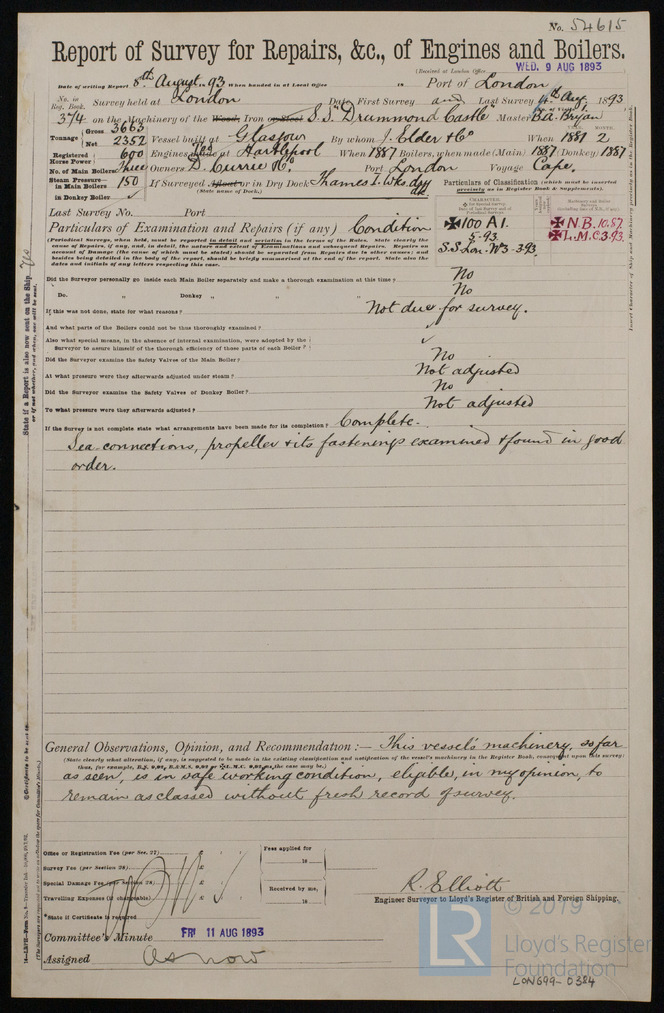 No. 54615
Report of Survey for Repairs, &c., of Engines and Boilers.
(Received at London Office WED. 9 AUG 1893
Date of writing Report 8th August 1893 When handed in at Local Office 18 Port of London
No. in Reg. Book. Survey held at London Date, First Survey and Last Survey 4th Aug 1893
374 on the Machinery of the Wood, Iron or Steel S.S. "Drummond Castle" Master
Tonnage Gross 3663 Net 2352 Vessel built at Glasgow By whom J. Elder & Co When 1881 2
Registered Horse Power 600 Engines made at Hartlepool When 1887 Boilers, when made (Main) 1887 (Donkey) 1887
No. of Main Boilers Three Owners D. Currie & Co Port London Voyage Cape.
Steam Pressure— in Main Boilers 150 If Surveyed Afloat or in Dry Dock Thames I. Wks dry dk.
(State name of Dock.)
in Donkey Boiler ✓
Particulars of Classification (which must be inserted precisely as in Register Book & Supplements).
Last Survey No. Port
✠100 A1. 5.93 S.S. Lon. No3-3.93
✠N.B. 10.87.
✠L.M.C. 3.93.
Particulars of Examination and Repairs (if any) Condition
(Periodical Surveys, when held, must be reported in detail and seriatim in the terms of the Rules. State clearly the
cause of Repairs, if any, and, in detail, the nature and extent of Examinations and subsequent Repairs. Repairs on
account of Damage (the cause of which must be stated) should be separated from Repairs due to other causes; and
besides being detailed in the body of the report, should be briefly summarised at the end of the report. State also the
dates and initials of any letters respecting this case.
Did the Surveyor personally go inside each Main Boiler separately and make a thorough examination at this time? No
Do. " Donkey " " " ? No
If this was not done, state for what reasons? Not due for survey.
And what parts of the Boilers could not be thus thoroughly examined? ✓
Also what special means, in the absence of internal examination, were adopted by the
Surveyor to assure himself of the thorough efficiency of those parts of each Boiler? ✓
Did the Surveyor examine the Safety Valves of the Main Boiler? No
At what pressure were they afterwards adjusted under steam? Not adjusted
Did the Surveyor examine the Safety Valves of Donkey Boiler? No
To what pressure were they afterwards adjusted? Not adjusted
If the Survey is not complete state what arrangements have been made for its completion? Complete.
Sea connections, propeller & its fastenings examined & found in good
order.
State if a Report is also now sent on the Ship. No
or if not whether, and when, one will be sent.
General Observations, Opinion, and Recommendation :— This vessel's machinery, as far
(State clearly what alteration, if any, is suggested to be made in the existing classification and notification of the vessel's machinery in the Register Book, consequent upon this survey;
as seen, is in safe working condition, eligible, in my opinion, to
remain as classed without fresh record of survey.
Office or Registration Fee (per Sec. 27) £
Survey Fee (per Section 28) £
Special Damage Fee (per Section 28) £
Travelling Expenses (if chargeable) £
Fees applied for 18
Received by me, 18
*State if Certificate is required
R. Elliott
Engineer Surveyor to Lloyd's Register of British and Foreign Shipping.
Committee's Minute FRI 11 AUG 1893
Assigned As now
© 2019
LR
Lloyd's Register
Foundation
LON699-0384